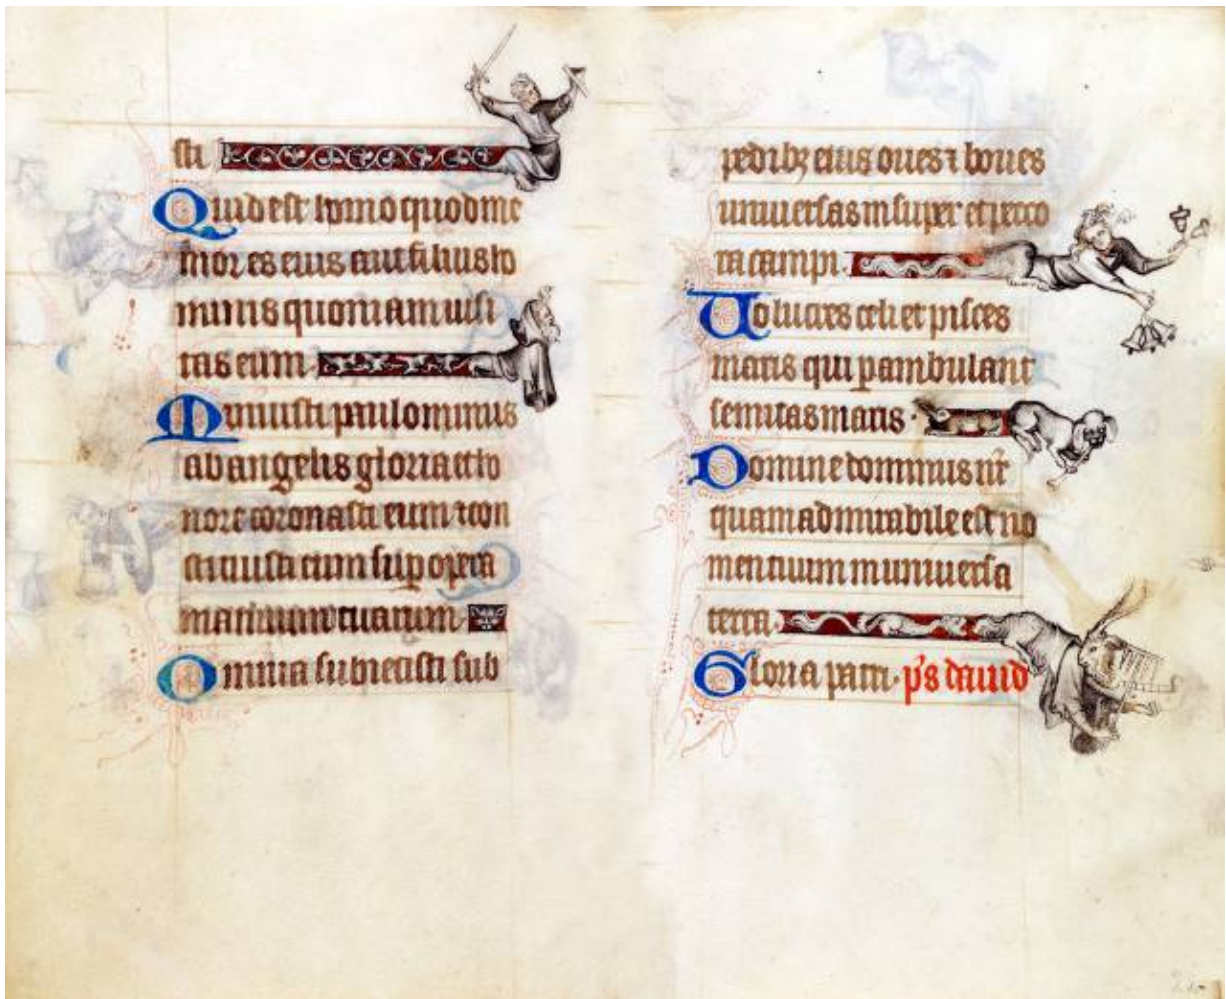 sti
Quid est homo quod me
mor es eius aut filius ho
minis quoniam uisi
tas eum.
Minuisti paulominus
ab angelis gloria et ho
nore coronasti eum ⁊ con
stituisti eum sup opera
manuum tuarum.
Omnia subiecisti sub
pedibꝫ eius oues ⁊ boues
uniuersas insuper et peco
ra campi.
Uolucres celi et pisces
maris qui pambulant
semitas maris.
Domine dominus nr̄
quam admirabile est no
men tuum in uniuersa
terra.
Gloria patri. p̄s dauid